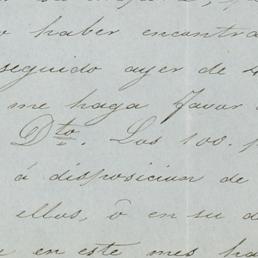 haber encontra
seguido ayer de 4
me haga favor
Dto. Los 100. p
á disposicion de
ellos, ô en su d
en este mes ha